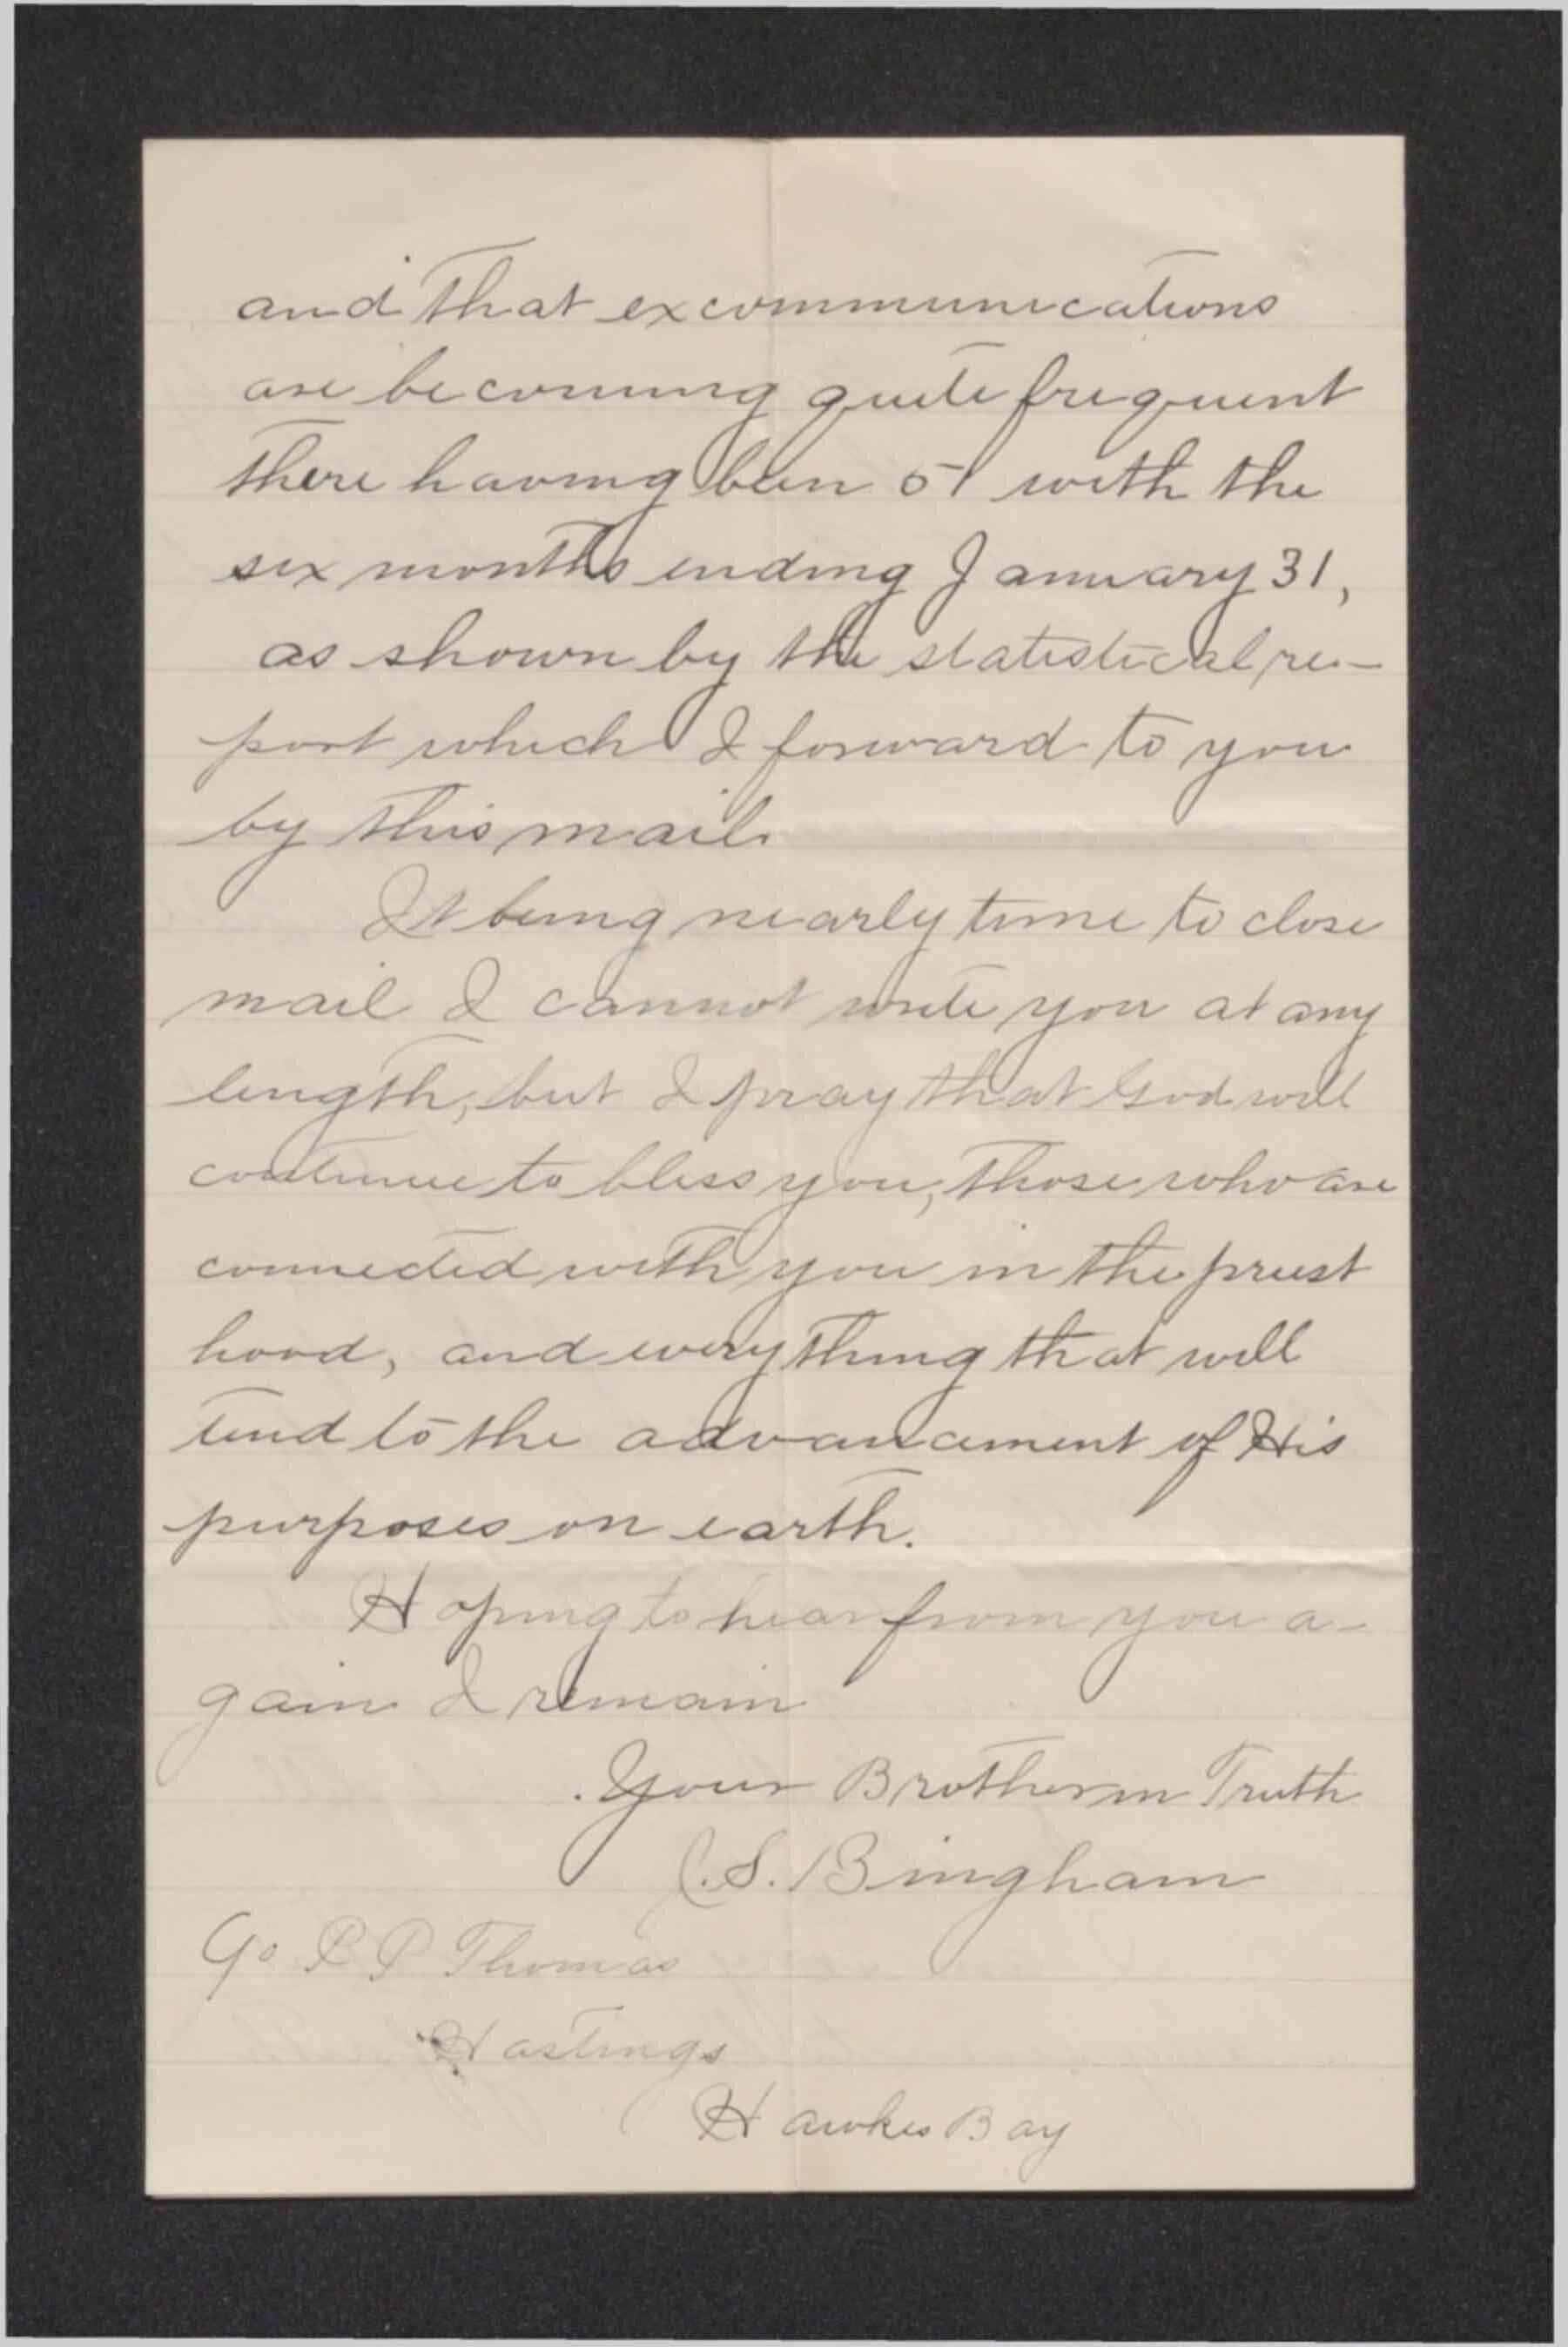 and that excommunications
are becoming quite frequent
there having been 51 with the
six months ending January 31,
as shown by the statistical re-
port which I forward to you
by this mail.
It being nearly time to close
mail I cannot write you at any
length, but I pray that God will
continue to bless you, those who are
connected with you in the priest
hood, and everything that will
tend to the advancement of His
purposes on earth.
Hoping to hear from you a-
gain I remain
Your Brother in Truth
J.S. Bingham
C/o R P Thomas
Hastings
Hawkes Bay